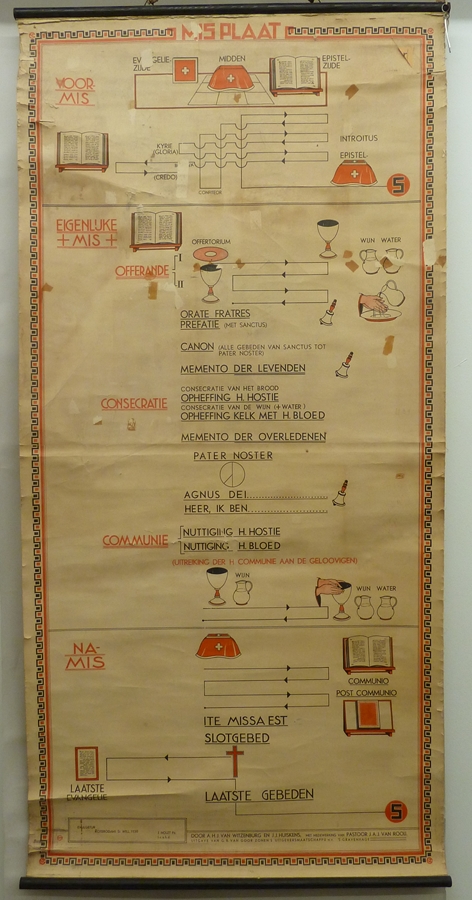 MISPLAAT
EVANGELIE-
ZIJDE
MIDDEN
EPISTEL-
ZIJDE
VOOR-
MIS
KYRIE
(GLORIA)
(CREDO)
CONFITEOR
INTROITUS
EPISTEL-
S
EIGENLIJKE
+ MIS +
OFFERTORIUM
WIJN WATER
OFFERANDE
I
II
ORATE FRATRES
PREFATIE (MET SANCTUS)
CANON (ALLE GEBEDEN VAN SANCTUS TOT
PATER NOSTER)
MEMENTO DER LEVENDEN
CONSECRATIE VAN HET BROOD
CONSECRATIE
OPHEFFING H. HOSTIE
CONSECRATIE VAN DE WIJN (+ WATER)
OPHEFFING KELK MET H. BLOED
MEMENTO DER OVERLEDENEN
PATER NOSTER
AGNUS DEI
HEER, IK BEN
COMMUNIE
NUTTIGING H. HOSTIE
NUTTIGING H. BLOED
(UITREIKING DER H. COMMUNIE AAN DE GELOOVIGEN)
WIJN
WIJN WATER
NA-
MIS
COMMUNIO
POST COMMUNIO
ITE MISSA EST
SLOTGEBED
LAATSTE
EVANGELIE
LAATSTE GEBEDEN
S
DOOR A.H.J. VAN WITZENBURG EN J.J. HUISKENS, PASTOOR J.A.J. VAN ROOIJ.